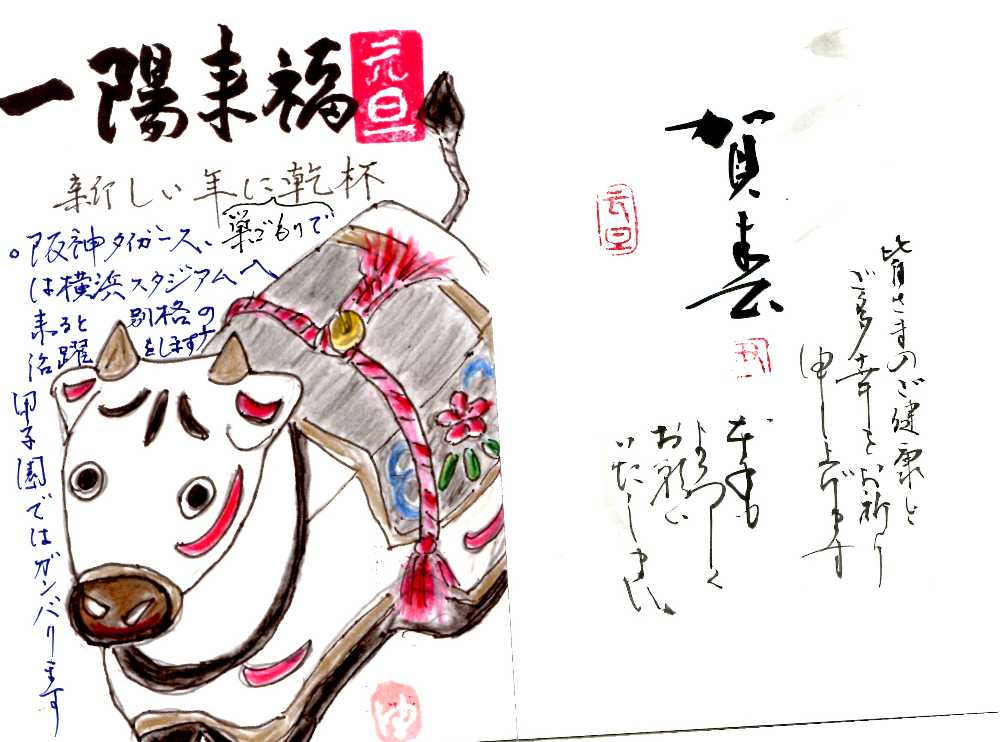 一陽来福
元旦
新しい年に乾杯
巣ごもりで
。阪神タイガース、
は横浜スタジアムへ
来ると
別格の
活躍
をします
甲子園ではガンバリます
ゆ
賀春
元旦
皆さまのご健康と
ご多幸をお祈り
申し上げます
本年も
よろしく
お願い
いたします